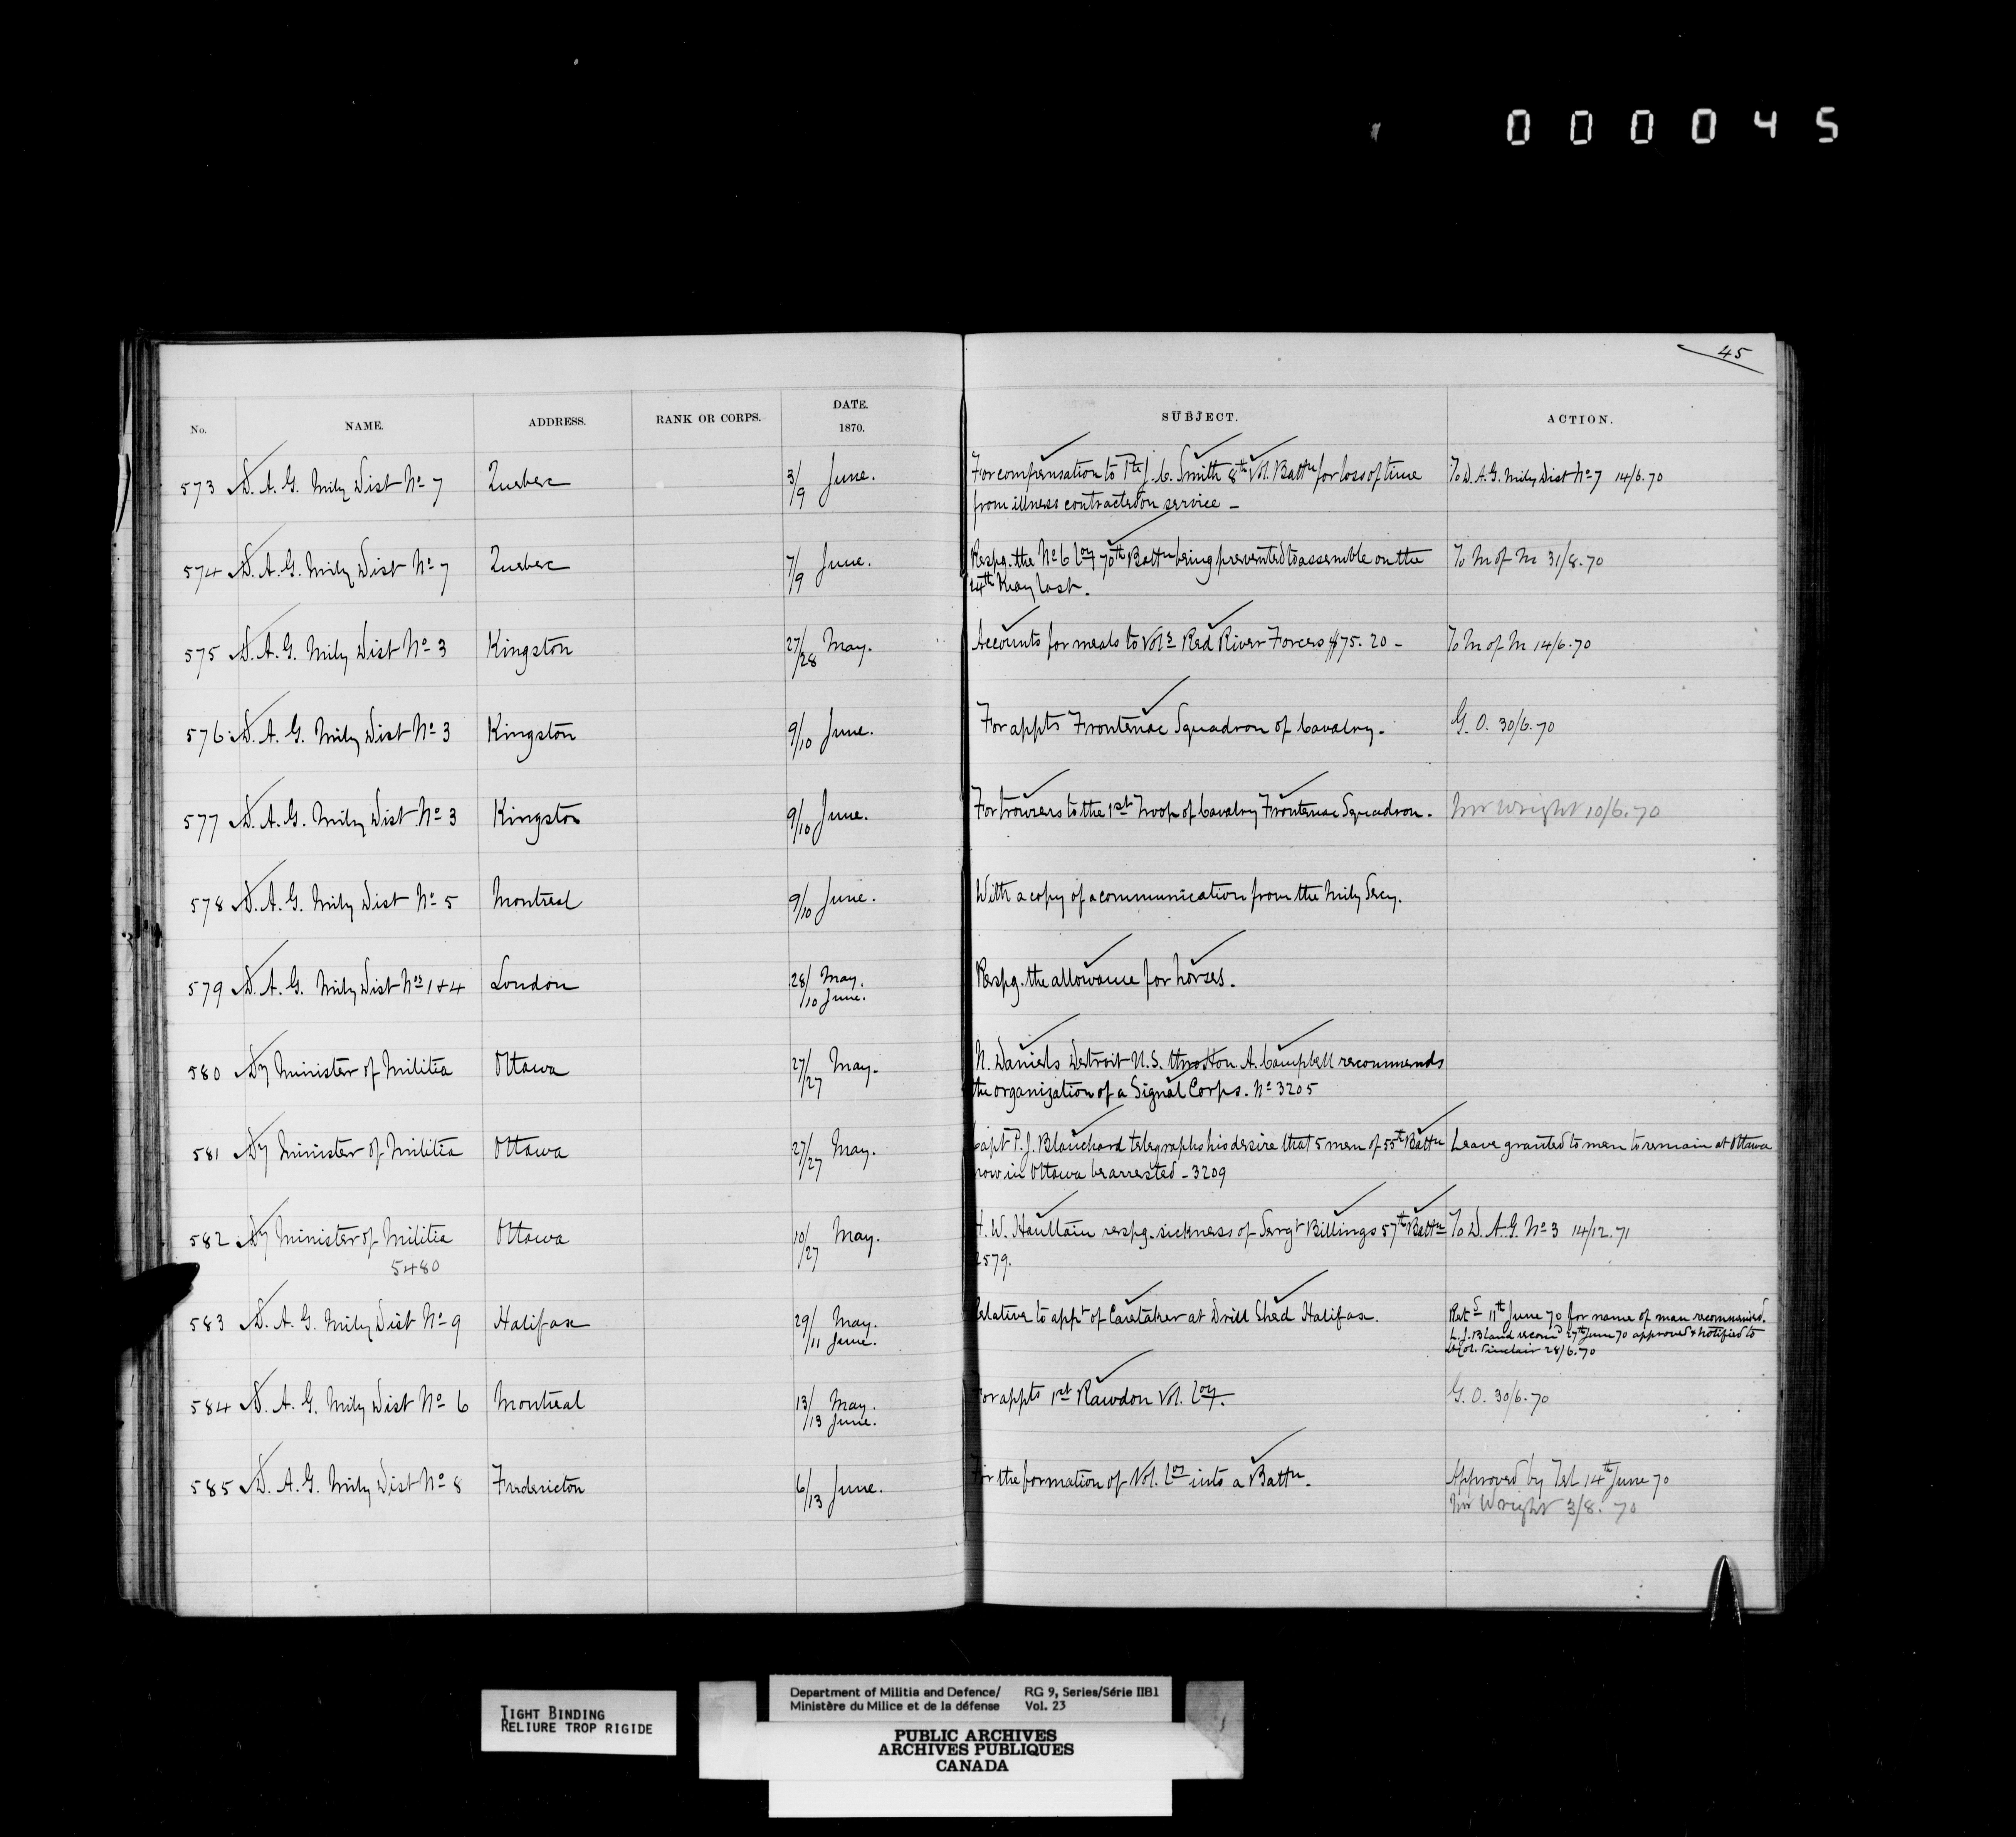 000045
45
No. NAME. ADDRESS. RANK OR CORPS. DATE. 1870. SUBJECT. ACTION.
573 D. A. G. Mily Dist No 7 Quebec 3/9 June. For compensation to Pte J. C. Smith 8th Vol. Battn for loss of time To D. A. G. Mily Dist No 7 14/6.70
from illness contracted on service -
574 D. A. G. Mily Dist No 7 Quebec 7/9 June. Respg. the No 6 Coy 70th Battn being prevented to assemble on the To M of M 31/8.70
24th May last.
575 D. A. G. Mily Dist No 3 Kingston 27/28 May. Accounts for meals to Vols Red River Forces $75. 20 - To M of M 14/6.70
576 D. A. G. Mily Dist No 3 Kingston 9/10 June. For appts Frontenac Squadron of Cavalry. G. O. 30/6.70
577 D. A. G. Mily Dist No 3 Kingston 9/10 June. For trowsers to the 1st Troop of Cavalry Frontenac Squadron. Mr Wright 10/6.70
578 D. A. G. Mily Dist No 5 Montreal 9/10 June. With a copy of a communication from the Mily Secy.
579 D. A. G. Mily Dist Nos 1 & 4 London 28/ May.
/10 June. Respg. the allowance for horses.
580 Dy Minister of Militia Ottawa 27/27 May. N. Daniels Detroit U.S. thro Hon. A. Campbell recommends
the organization of a Signal Corps. No 3205
581 Dy Minister of Militia Ottawa 27/27 May. Capt P. J. Blanchard telegraphs his desire that 5 men of 55th Battn Leave granted to men to remain at Ottawa
now in Ottawa be arrested - 3209
582 Dy Minister of Militia Ottawa 10/27 May. H. W. Haultain respg. sickness of Sergt Billings 57th Battn To D. A. G. No 3 14/12.71
5480 2579.
583 D. A. G. Mily Dist No 9 Halifax 29/ May.
/11 June. Relative to appt of Caretaker at Drill Shed Halifax. Retd 11th June 70 for name of man recommend.
L. J. Bland recomd 27th June 70 approved & notified to
Lt Col. Sinclair 28/6.70
584 D. A. G. Mily Dist No 6 Montreal 13/ May.
/13 June. For appts 1st Rawdon Vol. Coy. G. O. 30/6.70
585 D. A. G. Mily Dist No 8 Fredericton 6/13 June. For the formation of Vol. Cos into a Battn. Approved by Tel 14th June 70
Mr Wright 3/8.70
TIGHT BINDING
RELIURE TROP RIGIDE
Department of Militia and Defence/ RG 9, Series/Série IIB1
Ministère du Milice et de la défense Vol. 23
PUBLIC ARCHIVES
ARCHIVES PUBLIQUES
CANADA